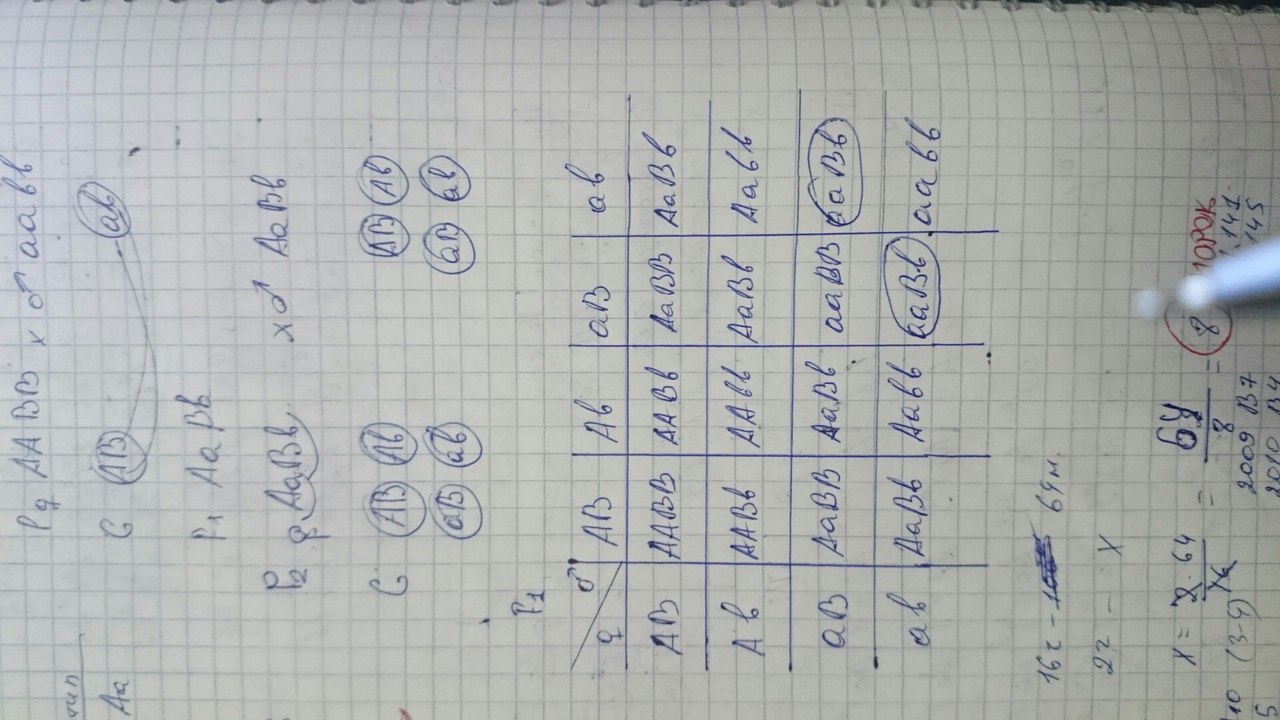 P ♀ AA BB x ♂ aabb
G AB ab
Aa
F1 Aa Bb
P2 ♀ AaBb x ♂ AaBb
G AB Ab AB Ab
aB ab aB ab
F1
♀ ♂ AB Ab aB ab
AB AABB AABb AaBB AaBb
Ab AABb AAbb AaBb Aabb
aB AaBB AaBb aaBB aaBb
ab AaBb Aabb aaBb aabb
16г - 64н.
2г - X
X = 2·64 / 16 = 64 / 8 = 8
(3-4) 2009 B7 141
2010 B4 145